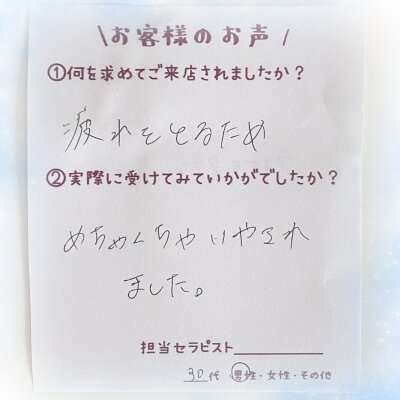 \お客様のお声/
①何を求めてご来店されましたか?
疲れをとるため
②実際に受けてみていかがでしたか?
めちゃくちゃいやされ
ました。
担当セラピスト
30代 男性・女性・その他